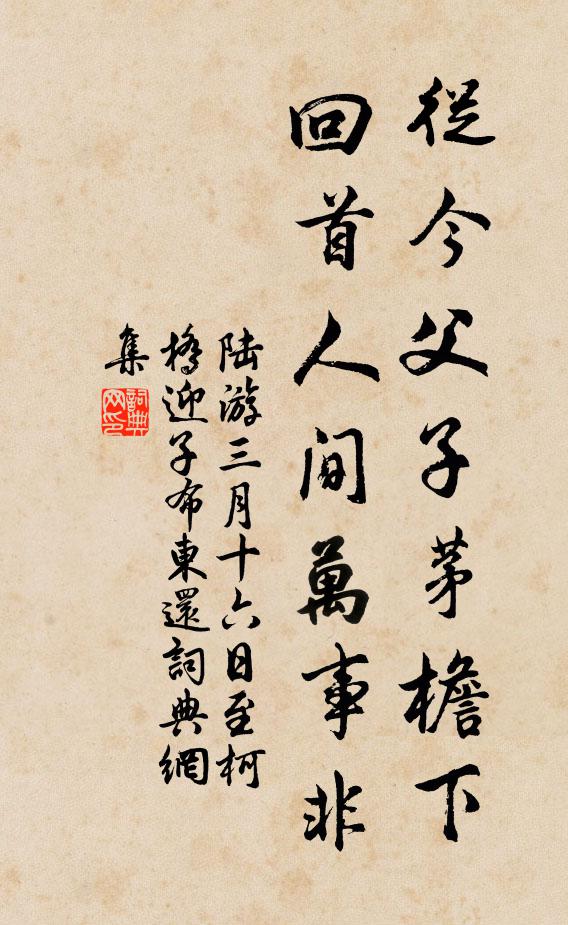 從今父子茅檐下
回首人間萬事非
陸游三月十六日至柯
橋迎子布東還詞典網
集
詞典
网印